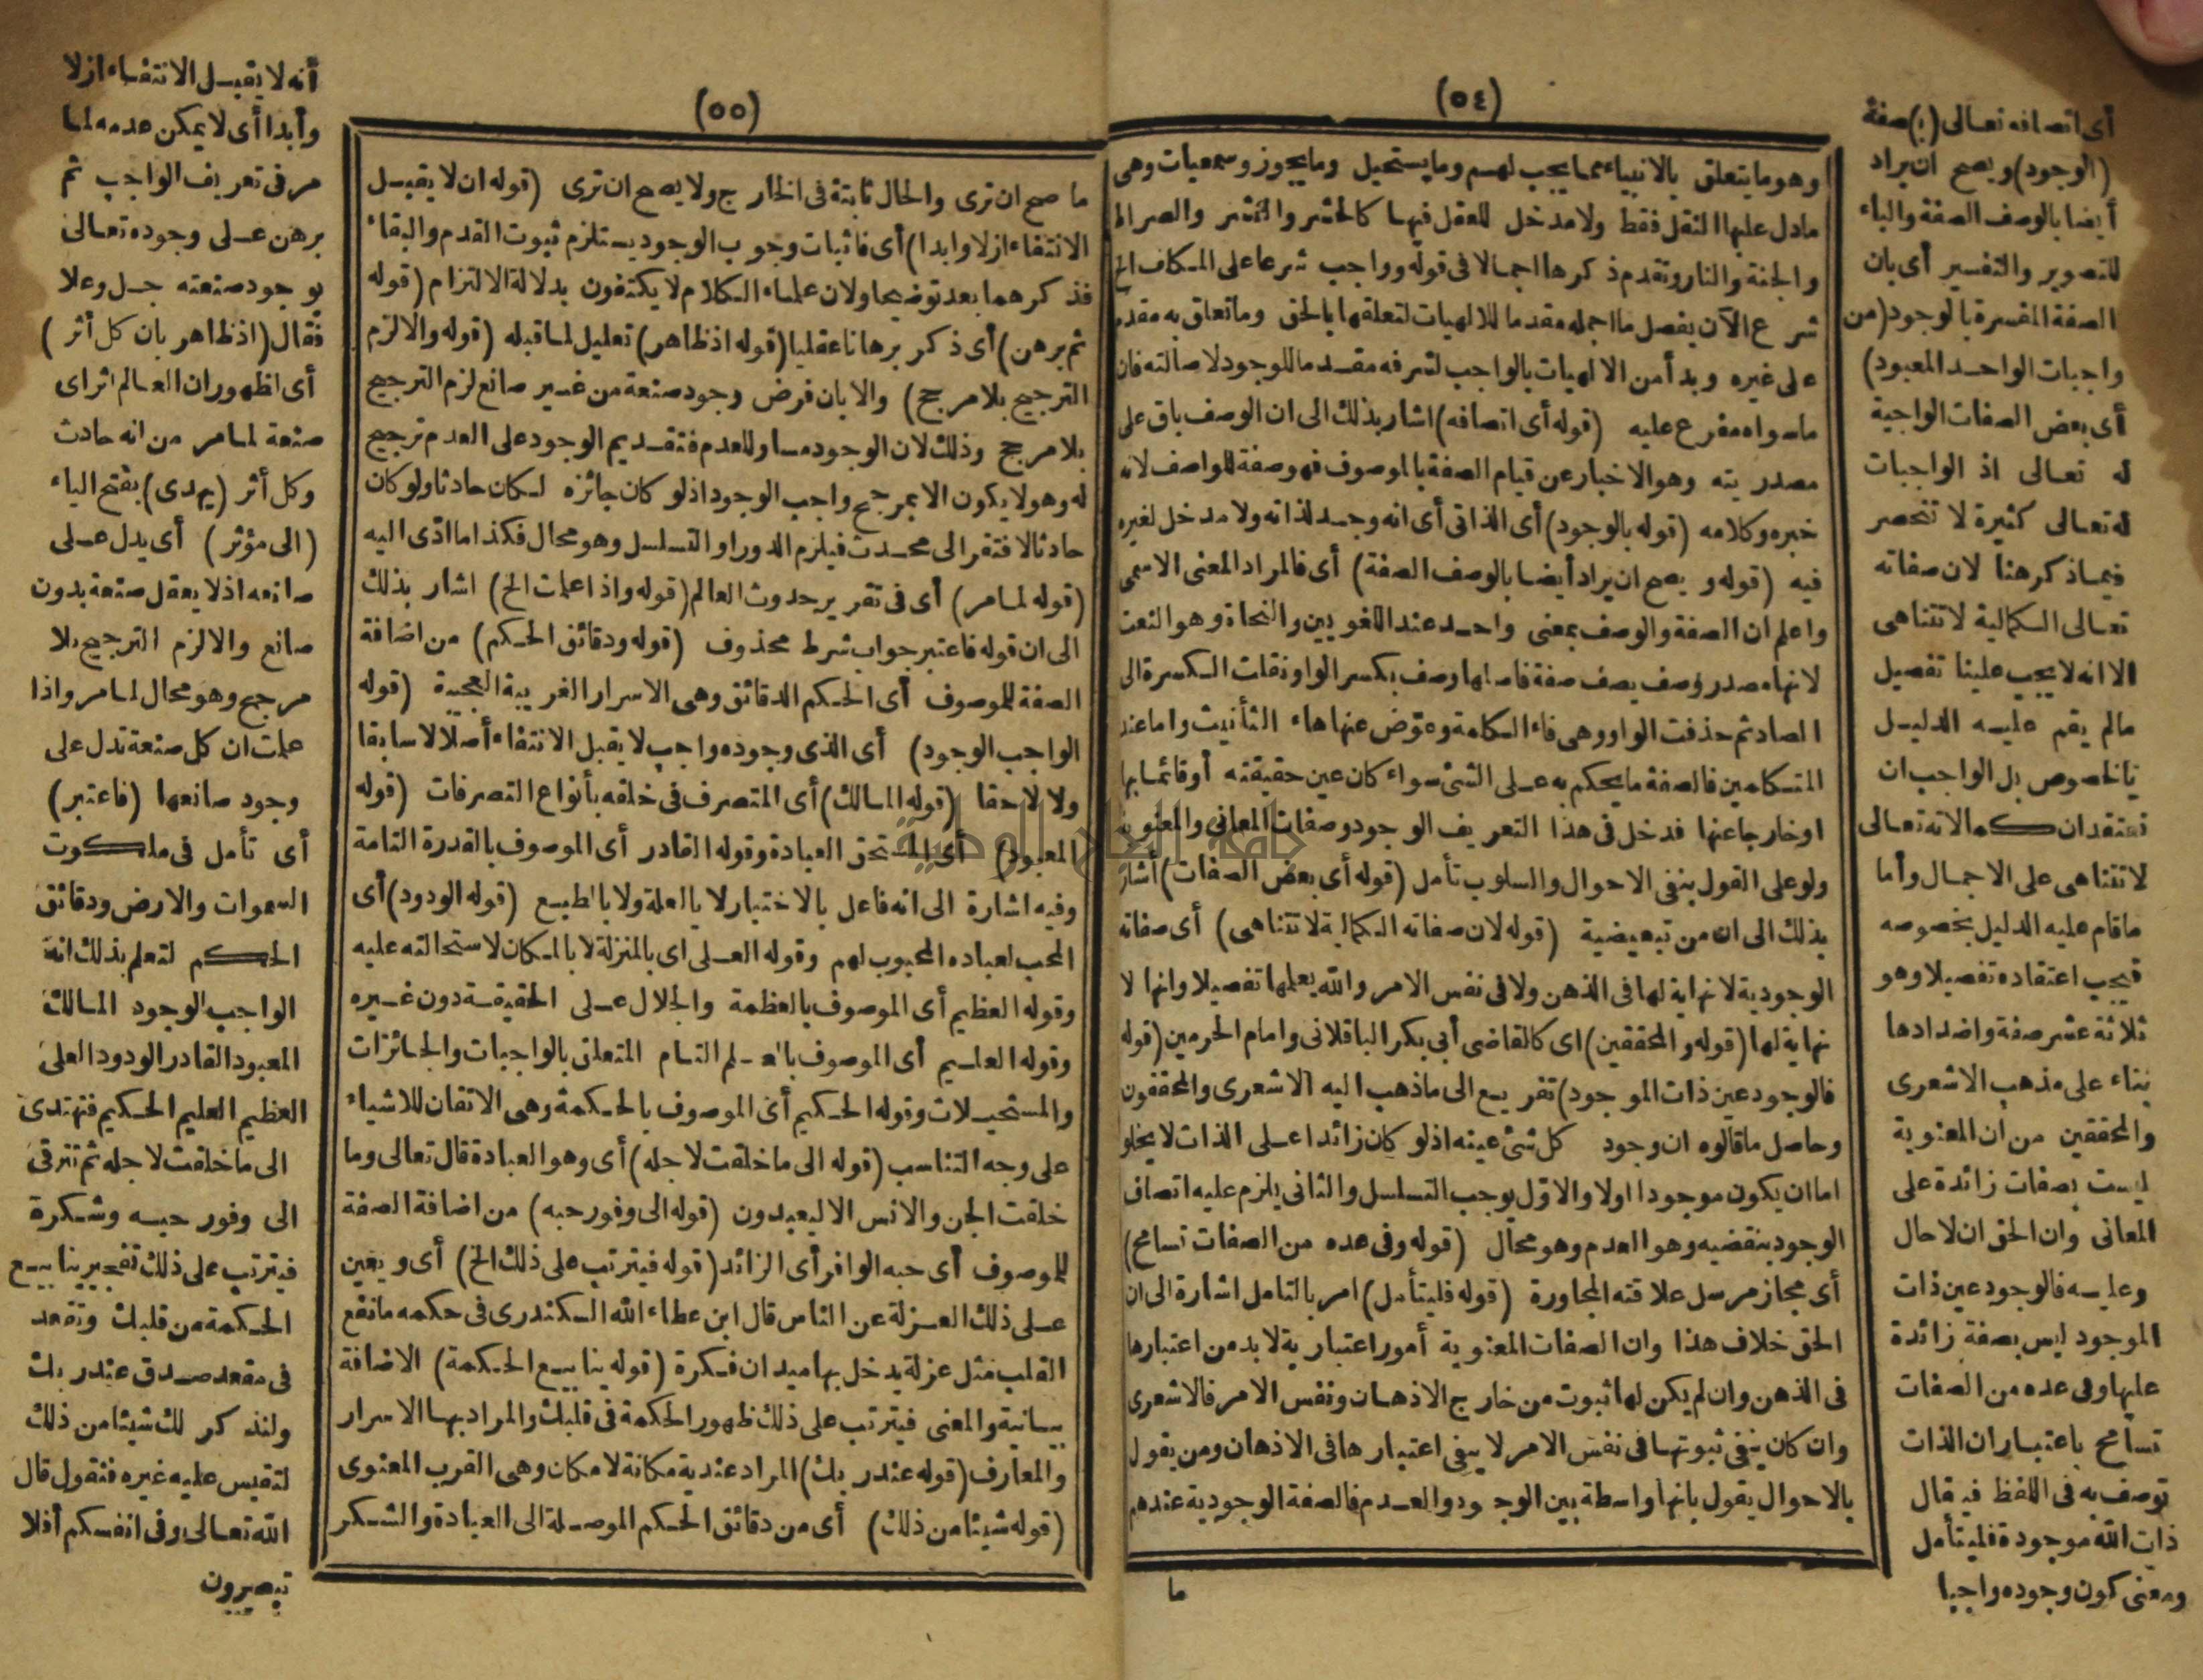 (٥٤)
أى اتصافه تعالى (ب) صفة
(الوجود) ويصح ان يراد
أيضا بالوصف الصفة والباء
للتصوير والتفسير أى بان
الصفة المفسرة بالوجود (من
واجبات الواحد المعبود)
أى بعض الصفات الواجبة
له تعالى اذ الواجبات
له تعالى كثيرة لا تنحصر
فيما ذكر هنا لان صفاته
تعالى الكمالية لا تتناهى
الا انه لا يجب علينا تفصيل
مالم يقم عليه الدليل
بالخصوص بل الواجب ان
نعتقد ان كمالاته تعالى
لا تتناهى على الاجمال وأما
ما قام عليه الدليل بخصوصه
فيجب اعتقاده تفصيلا وهو
ثلاثة عشر صفة واضدادها
بناء على مذهب الاشعرى
والمحققين من أن المعنوية
ليست بصفات زائدة على
المعانى وان الحق ان لا حال
وعليه فالوجود عين ذات
الموجود ليس بصفة زائدة
عليها وفى عده من الصفات
تسامح باعتبار ان الذات
توصف به فى اللفظ فيقال
ذات الله موجودة فليتأمل
ومعنى كون وجوده واجبا
وهو ما يتعلق بالانبياء مما يجب لهم وما يستحيل وما يجوز وسمعيات وهى
مادل عليها النقل فقط ولا مدخل للعقل فيها كالحشر والنشر والصراط
والجنة والنار وتقدم ذكرها اجمالا فى قوله وواجب شرعا على المكلف الخ
شرع الآن يفصل ما اجمله مقدما للالهيات لتعلقها بالحق وما تعلق به مقدم
على غيره وبدأ من الالهيات بالواجب لشرفه مقدما للوجود لاصالته فان
ماسواه مفرع عليه (قوله أى اتصافه) اشار بذلك الى ان الوصف باق على
مصدريته وهو الاخبار عن قيام الصفة بالموصوف فهو صفة للواصف لانه
خبره وكلامه (قوله بالوجود) أى الذاتى أى انه وجد لذاته ولا مدخل لغيره
فيه (قوله ويصح ان يراد أيضا بالوصف الصفة) أى فالمراد المعنى الاسمى
واعلم ان الصفة والوصف بمعنى واحد عند اللغويين والنحاة وهو النعت
لانها مصدر وصف يصف صفة فاصلها وصف بكسر الواو نقلت الكسرة الى
الصاد ثم حذفت الواو وهى فاء الكلمة وعوض عنها هاء التأنيث واما عند
المتكلمين فالصفة ما يحكم به على الشئ سواء كان عين حقيقته أو قائما بها
او خارجا عنها فدخل فى هذا التعريف الوجود وصفات المعانى والمعنوية
ولو على القول بنفى الاحوال والسلوب تأمل (قوله أى بعض الصفات) أشار
بذلك الى ان من تبعيضية (قوله لان صفاته الكمالية لا تتناهى) أى صفاته
الوجودية لا نهاية لها فى الذهن ولا فى نفس الامر والله يعلمها تفصيلا وانها لا
نهاية لها (قوله والمحققين) اى كالقاضى أبى بكر الباقلانى وامام الحرمين (قوله
فالوجود عين ذات الموجود) تفريع الى ما ذهب اليه الاشعرى والمحققون
وحاصل ما قالوه ان وجود كل شئ عينه اذ لو كان زائدا على الذات لا يخلو
اما ان يكون موجودا اولا والاول يوجب التسلسل والثانى يلزم عليه اتصاف
الوجود بنقضيه وهو العدم وهو محال (قوله وفى عده من الصفات تسامح)
أى مجاز مرسل علاقته المجاورة (قوله فليتأمل) امر بالتامل اشارة الى ان
الحق خلاف هذا وان الصفات المعنوية أمور اعتبارية لا بد من اعتبارها
فى الذهن وان لم يكن لها ثبوت من خارج الاذهان ونفس الامر فالاشعرى
وان كان ينفى ثبوتها فى نفس الامر لا ينفى اعتبارها فى الاذهان ومن يقول
بالاحوال يقول بانها واسطة بين الوجود والعدم فالصفة الوجودية عندهم
ما
(٥٥)
ما صح ان ترى والحال ثابتة فى الخارج ولا يصح ان ترى (قوله ان لا يقبل
الانتفاء ازلا وابدا) أى فاثبات وجوب الوجود يستلزم ثبوت القدم والبقاء
فذكرهما بعد توضيحا ولان علماء الكلام لا يكتفون بدلالة الالتزام (قوله
ثم برهن) أى ذكر برهانا عقليا (قوله اذ ظاهر) تعليل لما قبله (قوله والا لزم
الترجيح بلا مرجح) والا بان فرض وجود صنعة من غير صانع لزم الترجيح
بلا مرجح وذلك لان الوجود مساو للعدم فتقديم الوجود على العدم ترجيح
له وهو لا يكون الا بمرجح واجب الوجود اذ لو كان جائزه لكان حادثا ولو كان
حادثا لافتقر الى محدث فيلزم الدور او التسلسل وهو محال فكذا ما ادى اليه
(قوله لما مر) أى فى تقرير حدوث العالم (قوله واذا علمت الخ) اشار بذلك
الى ان قوله فاعتبر جواب شرط محذوف (قوله ودقائق الحكم) من اضافة
الصفة للموصوف أى الحكم الدقائق وهى الاسرار الغريبة العجيبة (قوله
الواجب الوجود) أى الذى وجوده واجب لا يقبل الانتفاء أصلا لا سابقا
ولا لاحقا (قوله المالك) أى المتصرف فى خلقه بأنواع التصرفات (قوله
المعبود) أى المستحق العبادة وقوله القادر أى الموصوف بالقدرة التامة
وفيه اشارة الى انه فاعل بالاختيار لا بالعلة ولا بالطبع (قوله الودود) أى
المحب لعباده المحبوب لهم وقوله العلى اى بالمنزلة لا بالمكان لاستحالته عليه
وقوله العظيم أى الموصوف بالعظمة والجلال على الحقيقة دون غيره
وقوله العليم أى الموصوف بالعلم التام المتعلق بالواجبات والجائزات
والمستحيلات وقوله الحكيم أى الموصوف بالحكمة وهى الاتقان للاشياء
على وجه التناسب (قوله الى ما خلقت لاجله) أى وهو العبادة قال تعالى وما
خلقت الجن والانس الا ليعبدون (قوله الى وفور حبه) من اضافة الصفة
للموصوف أى حبه الوافر أى الزائد (قوله فيترتب على ذلك الخ) أى ويعين
على ذلك العزلة عن الناس قال ابن عطاء الله السكندرى فى حكمه ما نفع
القلب مثل عزلة يدخل بها ميدان فكرة (قوله ينابيع الحكمة) الاضافة
بيانية والمعنى فيترتب على ذلك ظهور الحكمة فى قلبك والمراد بها الاسرار
والمعارف (قوله عند ربك) المراد عندية مكانة لا مكان وهى القرب المعنوى
(قوله شيئا من ذلك) أى من دقائق الحكم الموصلة الى العبادة والشكر
أنه لا يقبل الانتفاء ازلا
وأبدا أى لا يمكن عدمه لما
مر فى تعريف الواجب ثم
برهن على وجوده تعالى
بوجود صنعته جل وعلا
فقال (اذ ظاهر بان كل أثر)
أى اظهور ان العالم اثر اى
صنعة لما مر من انه حادث
وكل أثر (يهدى) بفتح الياء
(الى مؤثر) أى يدل على
صانعه اذ لا يعقل صنعة بدون
صانع والا لزم الترجيح بلا
مرجح وهو محال لما مر واذا
علمت ان كل صنعة تدل على
وجود صانعها (فاعتبر)
أى تأمل فى ملكوت
السموات والارض ودقائق
الحكم لتعلم بذلك انه
الواجب الوجود المالك
المعبود القادر الودود العلى
العظيم العليم الحكيم فتهتدى
الى ما خلقت لاجله ثم تترقى
الى وفور حبه وشكره
فيترتب على ذلك تفجير ينابيع
الحكمة من قلبك وتقعد
فى مقعد صدق عند ربك
ولنذكر لك شيئا من ذلك
لتقيس عليه غيره فنقول قال
الله تعالى وفى انفسكم أفلا
تبصرون
جامعة النجاح الوطنية